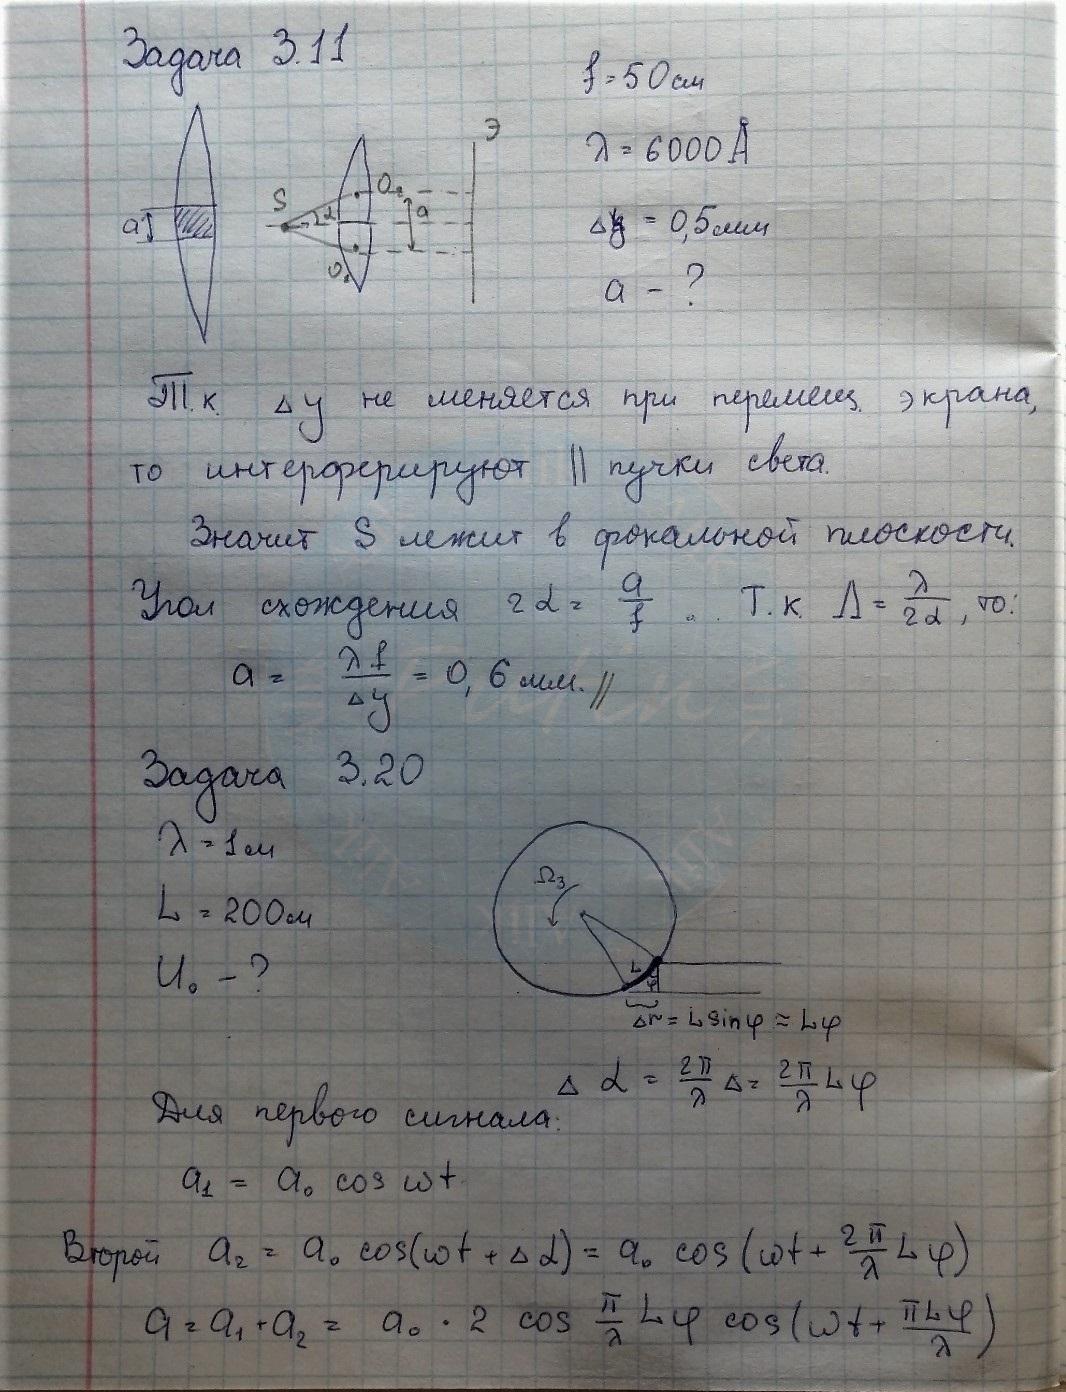 Задача 3.11
f = 50 см
λ = 6000 Å
Δy = 0,5 мм
a - ?
a
S
α
O₂
O₁
a
Э
Т.к. Δy не меняется при перемещ. экрана,
то интерферируют || пучки света.
Значит S лежит в фокальной плоскости.
Угол схождения 2α = a/f. Т.к. Λ = λ/2α, то:
a = λf/Δy = 0,6 мм. //
Задача 3.20
λ = 1 м
L = 200 м
U₀ - ?
Ω₃
L
φ
Δr = L sinφ ≈ Lφ
Δα = 2π/λ Δ = 2π/λ Lφ
Для первого сигнала:
a₁ = a₀ cos ωt
Второй a₂ = a₀ cos(ωt + Δα) = a₀ cos(ωt + 2π/λ Lφ)
a = a₁ + a₂ = a₀ · 2 cos π/λ Lφ cos(ωt + πLφ/λ)